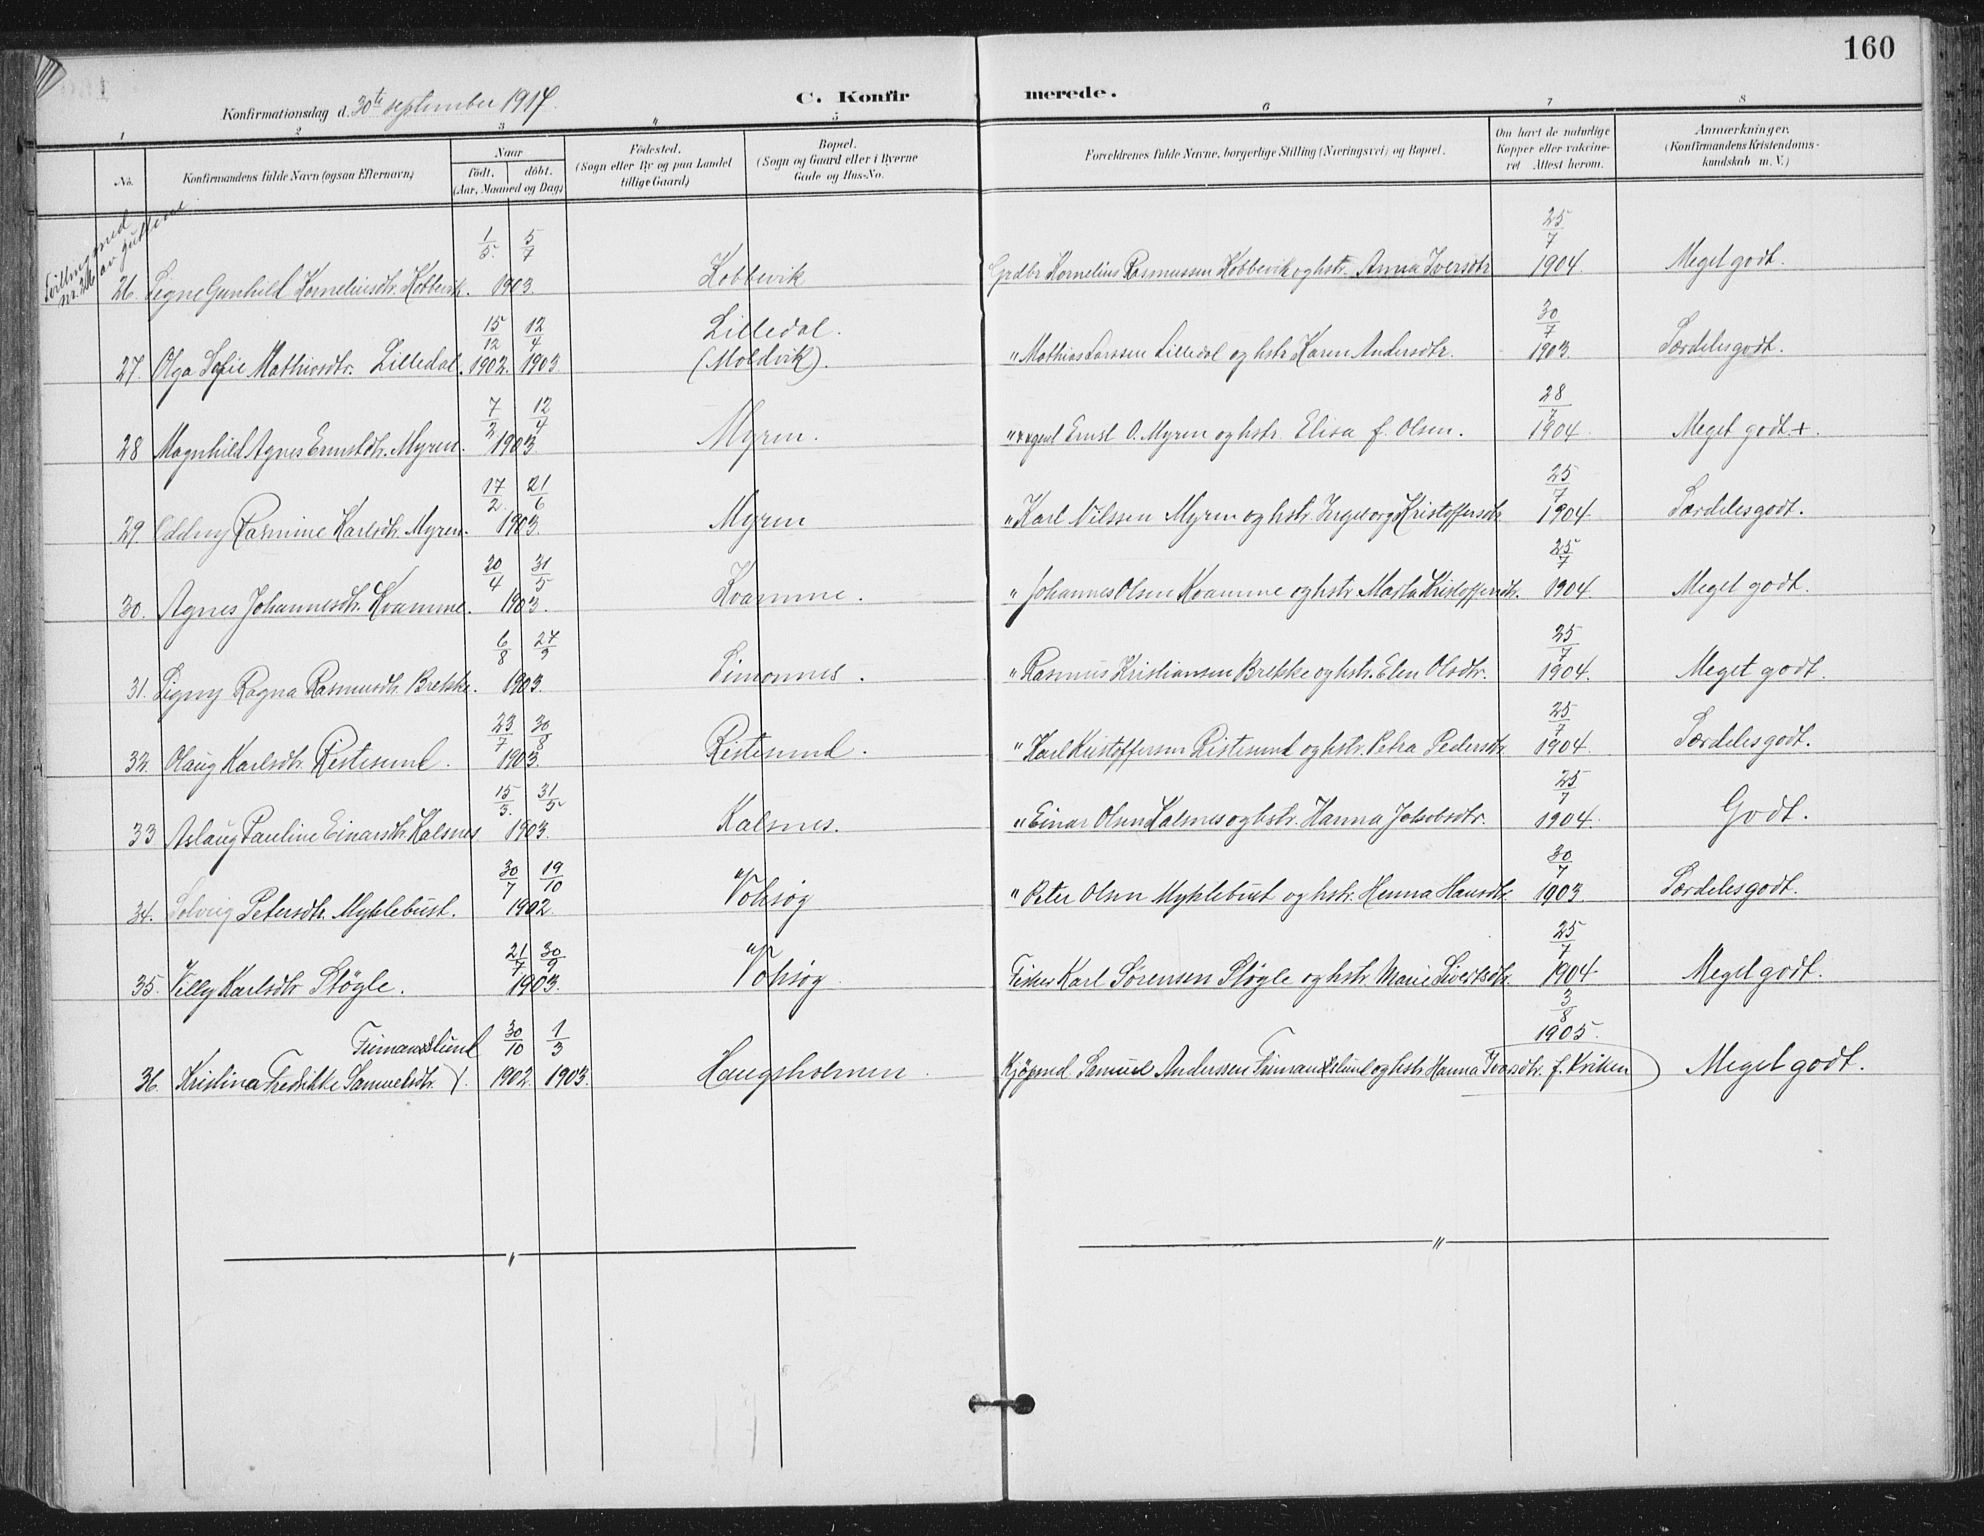 160
Konfirmationsdag d. 30te september 1917. C. Konfirmerede.
1 2 3 4 5 6 7 8
No. Konfirmandens fulde Navn (ogsaa Efternavn) Naar født. døbt. (Aar, Maaned og Dag) Fødested. (Sogn eller By og paa Landet tillige Gaard) Bopæl. (Sogn og Gaard eller i Byerne Gade og Hus-No. Forældrenes fulde Navne, borgerlige Stilling (Næringsvei) og Bopæl. Om havt de naturlige Kopper eller vaccineret Attest herom. Anmærkninger. (Konfirmandens Kristendomskundskab m. V.)
Tvilling med nr. 26 av guttene
26. Signe Gunhild Korneliusdtr. Kobbevik. 1/5 5/7 1903. Kobbevik Grdbr Kornelius Rasmussen Kobbevik og hstr. Anna Iversdtr 25/7 1904. Meget godt.
27. Olga Sofie Mathisdtr. Lilledal. 15/12 1902. 12/4 1903. Lilledal. (Moldvik). " Mathias Larssen Lilledal og hstr Karen Andersdtr. 30/7 1903. Særdelesgodt.
28 Magnhild Agnes Ernstdtr. Myren. 7/2 12/4 1903. Myren. " Ernst O. Myren og hstr. Elisa f. Olsen. 28/7 1904. Meget godt +.
29. Oddny Rasmine Karlsdtr. Myren. 17/2 21/6 1903. Myren " Karl Nilssen Myren og hstr. Ingeborg Kristoffersdtr 25/7 1904. Særdelesgodt.
30. Agnes Johannesdtr. Kvamme. 20/4 31/5 1903. Kvamme. " Johannes Olsen Kvamme og hstr Marta Kristoffersdtr. 25/7 1904. Meget godt.
31. Signy Ragna Rasmusdtr. Brekke. 6/8 27/9 1903. Simonnes. " Rasmus Kristiansen Brekke og hstr. Elen Olsdtr. 25/7 1904. Meget godt.
32. Olaug Karlsdtr. Ristesund. 23/7 30/8 1903. Ristesund. " Karl Kristoffersen Ristesund og hstr. Petra Pedersdtr 25/7 1904. Særdelesgodt.
33 Aslaug Pauline Einarsdtr. Kalsnes 15/3. 31/5 1903. Kalsnes. " Einar Olsen Kalsnes og hstr. Hanna Jakobsdtr. 25/7 1904. Godt.
34. Solveig Petersdtr. Myklebust. 30/7 19/10 1902. Voksøy " Peter Olsen Myklebust og hstr. Hanna Hansdtr. 30/7 1903. Særdelesgodt.
35. Villy Karlsdtr Støyle. 21/7 30/9 1903. Voksøy Fisker Karl Sørensen Støyle og hstr Marie Sivertsdtr. 25/7 1904. Meget godt.
36. Kristina Fredikke Samuelsdtr. Firmanslund 30/10 1902. 1/3 1903. Haugsholmen Kjøpmd. Samuel Andersen Firmanslund og hstr Hanna Ivarsdtr. f. Kriken 3/8 1905. Meget godt.